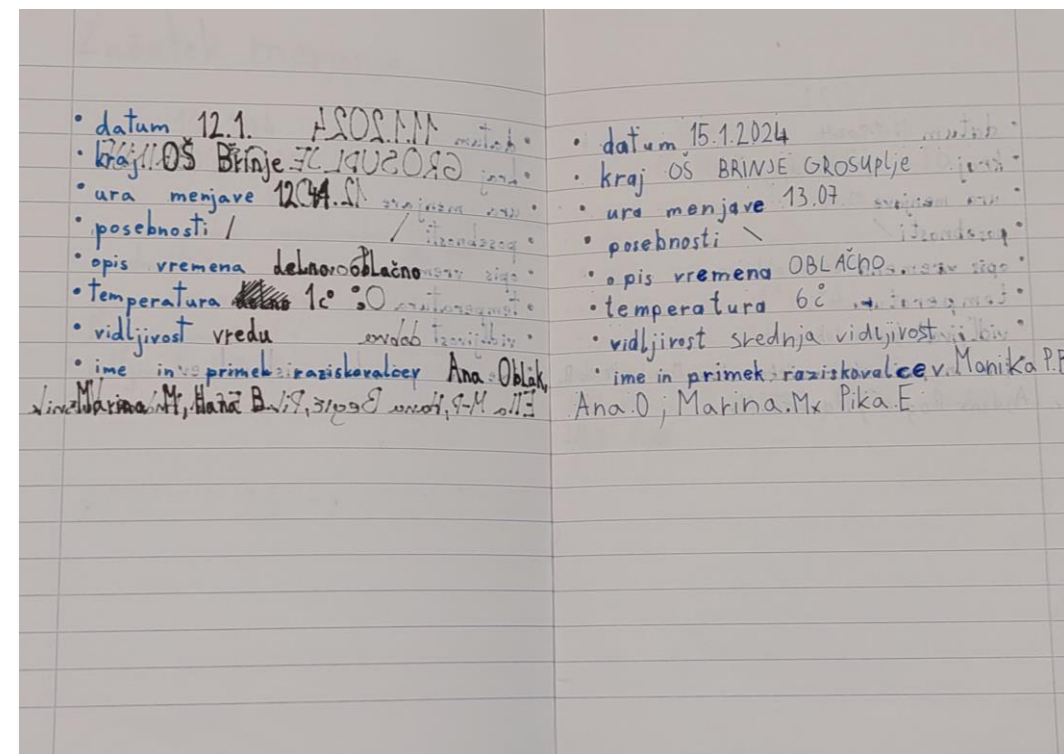 • datum 12.1.
• kraj OŠ Brinje
• ura menjave
• posebnosti /
• opis vremena delno oblačno
• temperatura 1c°
• vidljivost vredu
• ime in primek raziskovalcev Ana Oblak,
Marina M, Hana B.
• datum 15.1.2024
• kraj OŠ BRINJE GROSUPLJE
• ura menjave 13.07
• posebnosti \
• opis vremena OBLAČNO
• temperatura 6c°
• vidljivost srednja vidljivost
• ime in primek raziskovalcev Monika P.P
Ana.O ; Marina.M Pika.E